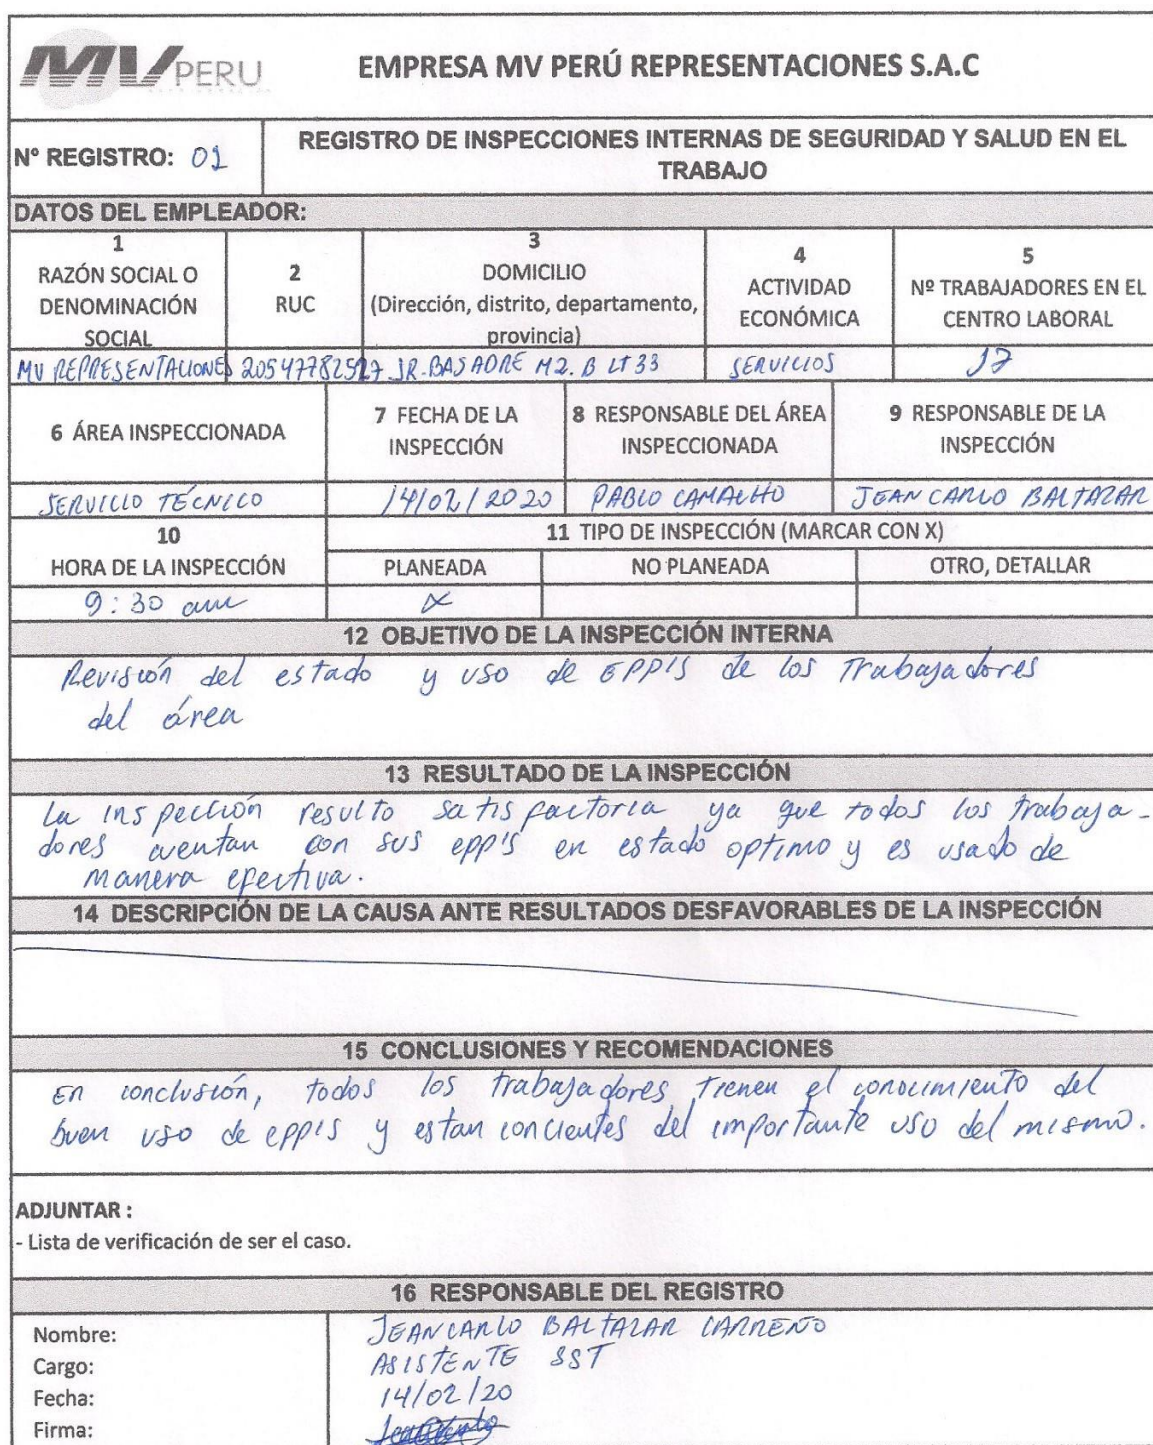 MV PERU
EMPRESA MV PERÚ REPRESENTACIONES S.A.C
Nº REGISTRO: 01
REGISTRO DE INSPECCIONES INTERNAS DE SEGURIDAD Y SALUD EN EL
TRABAJO
DATOS DEL EMPLEADOR:
1
RAZÓN SOCIAL O
DENOMINACIÓN
SOCIAL
2
RUC
3
DOMICILIO
(Dirección, distrito, departamento,
provincia)
4
ACTIVIDAD
ECONÓMICA
5
Nº TRABAJADORES EN EL
CENTRO LABORAL
MV REPRESENTACIONES 20547782527 JR. BASADRE MZ. B LT 33 SERVICIOS 17
6 ÁREA INSPECCIONADA
7 FECHA DE LA
INSPECCIÓN
8 RESPONSABLE DEL ÁREA
INSPECCIONADA
9 RESPONSABLE DE LA
INSPECCIÓN
SERVICIO TÉCNICO 14/02/2020 PABLO CAMACHO JEAN CARLO BALTAZAR
10
HORA DE LA INSPECCIÓN
11 TIPO DE INSPECCIÓN (MARCAR CON X)
PLANEADA NO PLANEADA OTRO, DETALLAR
9:30 am X
12 OBJETIVO DE LA INSPECCIÓN INTERNA
Revisión del estado y uso de EPP'S de los Trabajadores
del área
13 RESULTADO DE LA INSPECCIÓN
La inspección resulto satisfactoria ya que todos los trabaja-
dores cuentan con sus epp's en estado optimo y es usado de
manera efectiva.
14 DESCRIPCIÓN DE LA CAUSA ANTE RESULTADOS DESFAVORABLES DE LA INSPECCIÓN
15 CONCLUSIONES Y RECOMENDACIONES
En conclusión, todos los trabajadores tienen el conocimiento del
buen uso de epp's y estan concientes del importante uso del mismo.
ADJUNTAR :
- Lista de verificación de ser el caso.
16 RESPONSABLE DEL REGISTRO
Nombre: JEANCARLO BALTAZAR CARREÑO
Cargo: ASISTENTE SST
Fecha: 14/02/20
Firma: